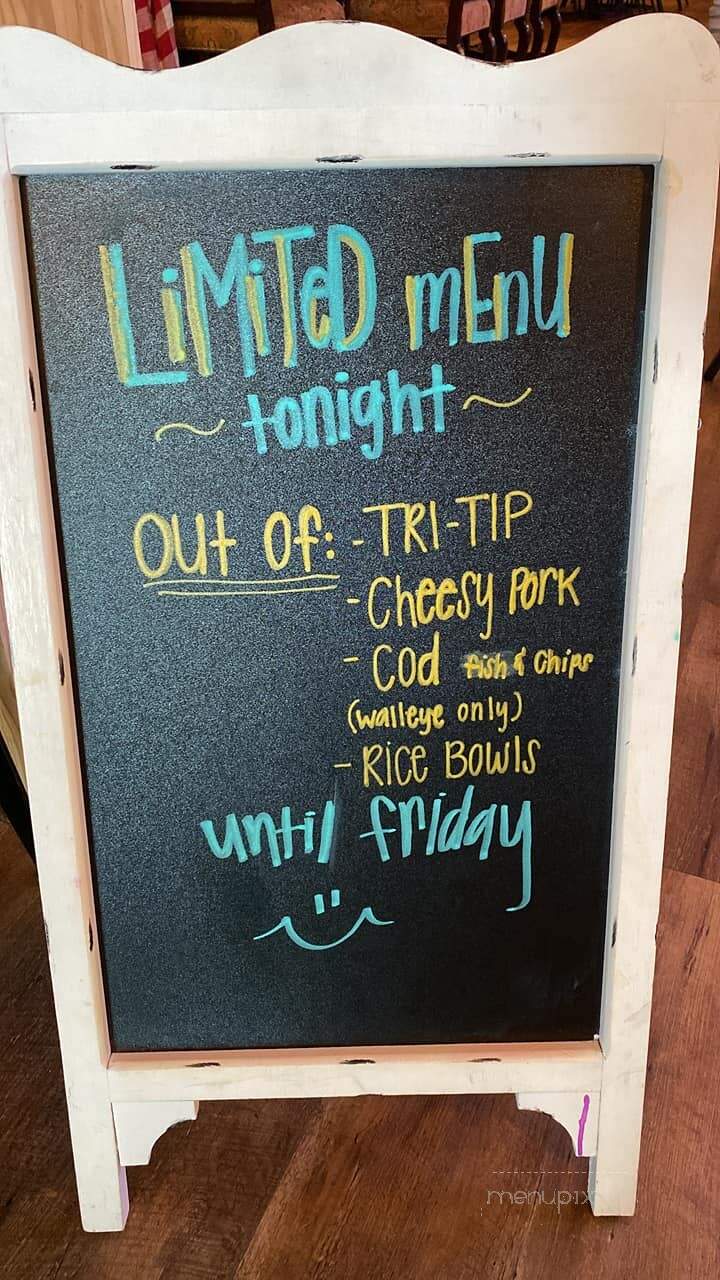 LiMiTeD mEnU
~ tonight ~
OUt OF: -TRI-TIP
-Cheesy PORK
- Cod fish & Chips
(walleye only)
- RICE BOWlS
until friday
menupix